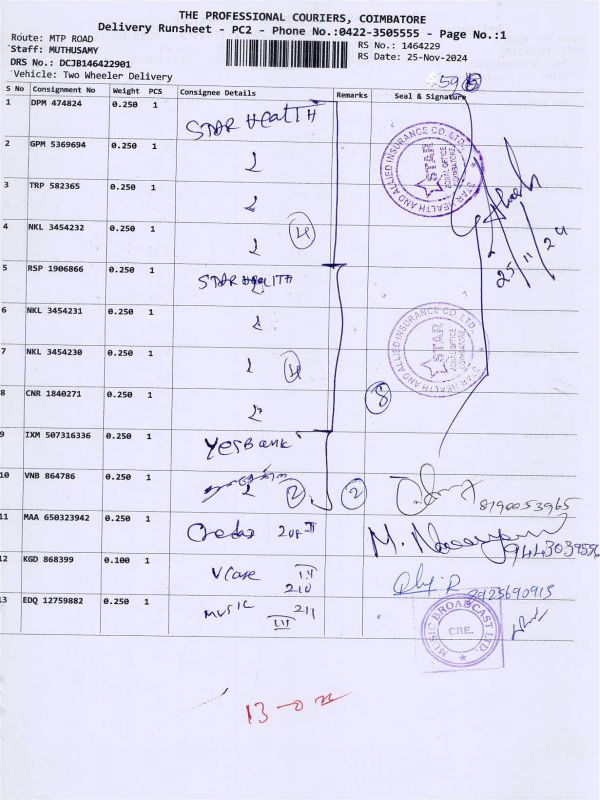 THE PROFESSIONAL COURIERS, COIMBATORE
Delivery Runsheet - PC2 - Phone No.:0422-3505555 - Page No.:1
Route: MTP ROAD
RS No.: 1464229
Staff: MUTHUSAMY
RS Date: 25-Nov-2024
DRS No.: DCJB146422901
Vehicle: Two Wheeler Delivery
S No Consignment No Weight PCS Consignee Details Remarks Seal & Signature
1 DPM 474824 0.250 1 STAR HeaLTH
2 GPM 5369694 0.250 1
3 TRP 582365 0.250 1
4 NKL 3454232 0.250 1 4
5 RSP 1906866 0.250 1 STAR HeaLITH
6 NKL 3454231 0.250 1
7 NKL 3454230 0.250 1 4
8 CNR 1840271 0.250 1 8
9 IXM 507316336 0.250 1 Yes Bank
10 VNB 864786 0.250 1 2 2 8190053965
11 MAA 650323942 0.250 1 M.
12 KGD 868399 0.100 1 V Care 210
13 EDQ 12759882 0.250 1 MUSIC 211
STAR HEALTH AND ALLIED INSURANCE CO. LTD.
STAR
ZONAL OFFICE
COIMBATORE
25/11/24
STAR HEALTH AND ALLIED INSURANCE CO. LTD.
STAR
ZONAL OFFICE
COIMBATORE
MUSIC BROADCAST LTD.
CBE.
13